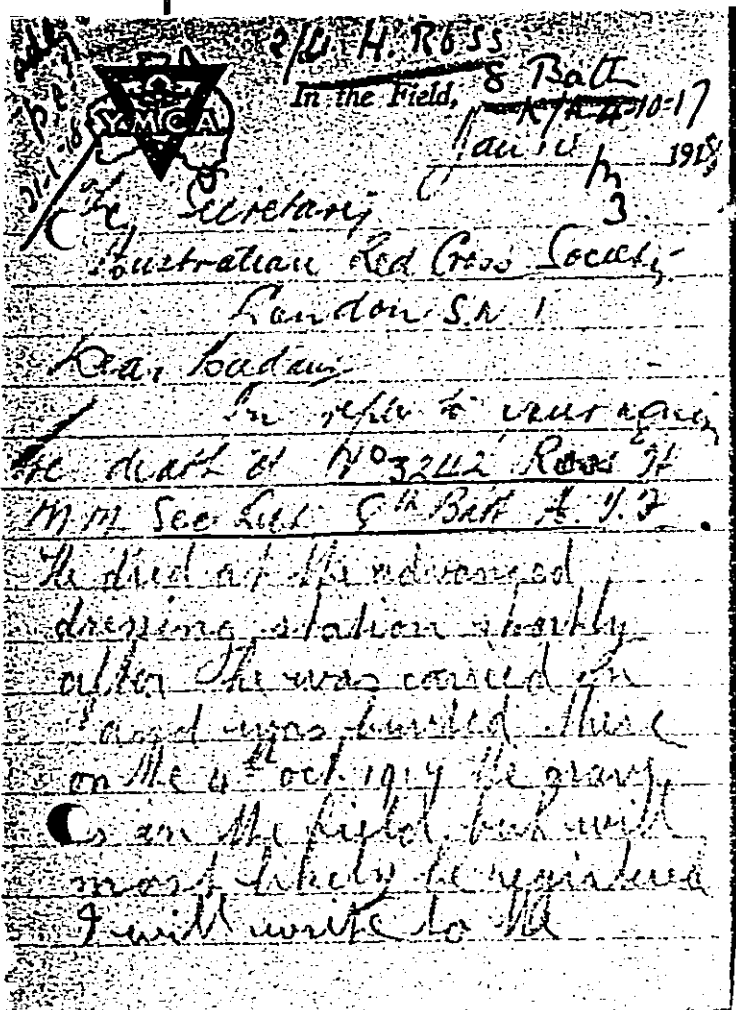 2/Lt H. Ross
8 Batt
In the Field,
K/A 4-10-17
Y.M.C.A
21-1-18
Jan 1918
3.
The Secretary
Australian Red Cross Society
London S.W. 1
Dear Madam
In reply to your
re death of No 3242 Ross H
M M Sec Lut 8th Batt A. I. F.
He died at the advanced
dressing station shortly
after he was carried in
and was buried there
on the 4th oct. 1917 the grave
is in the field but will
most likely be registered
I will write to the